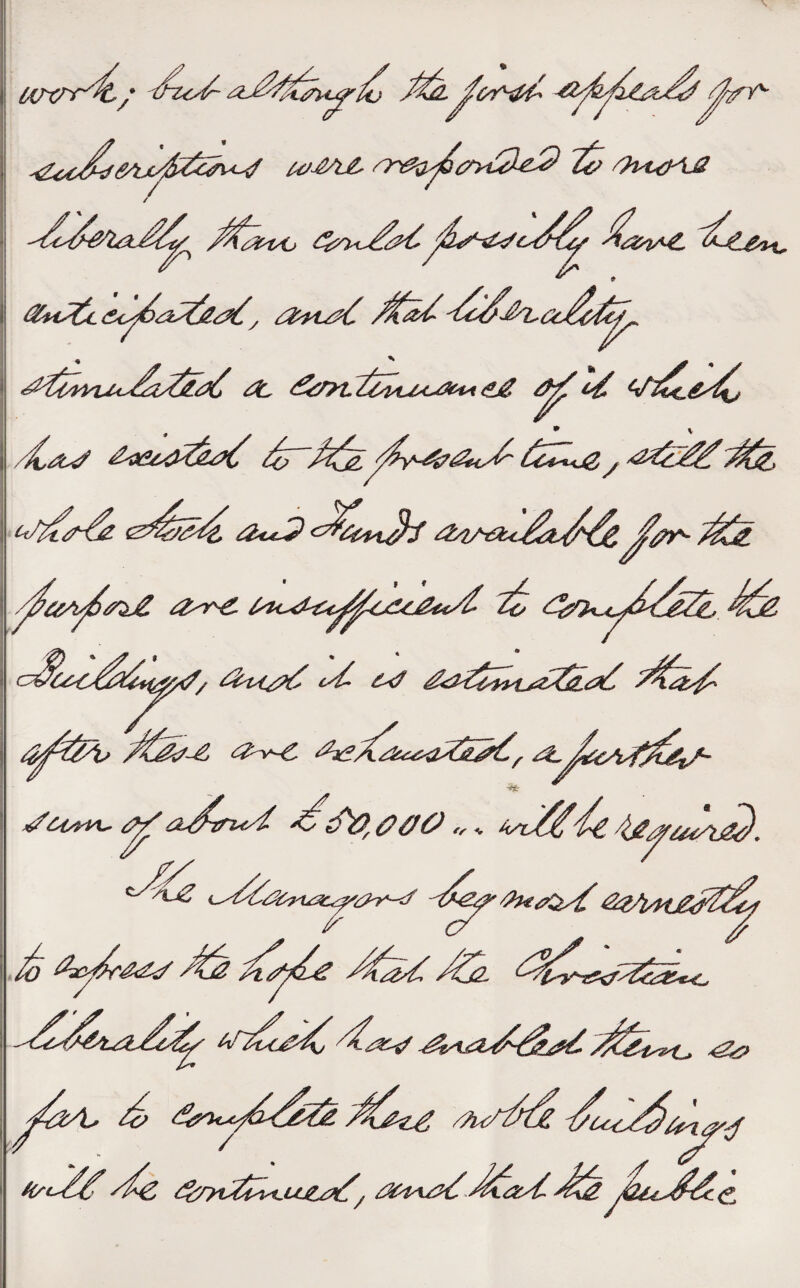 work; but although the first appeals for
subscriptions were responded to more
liberally than could possibly have been
anticipated, and that liberality
stimulated a continuance of it which
has existed to the present time, still the
whole stock and Funds available for the
purpose are insufficient to complete the
Buildings, and it is estimated that
after these are exhausted, a further
sum of about £50,000 „. will be required.
The Managers beg most earnestly
to express the hope that the Christian
liberality which has enabled them so
far to complete these noble buildings
will be continued, and that the public